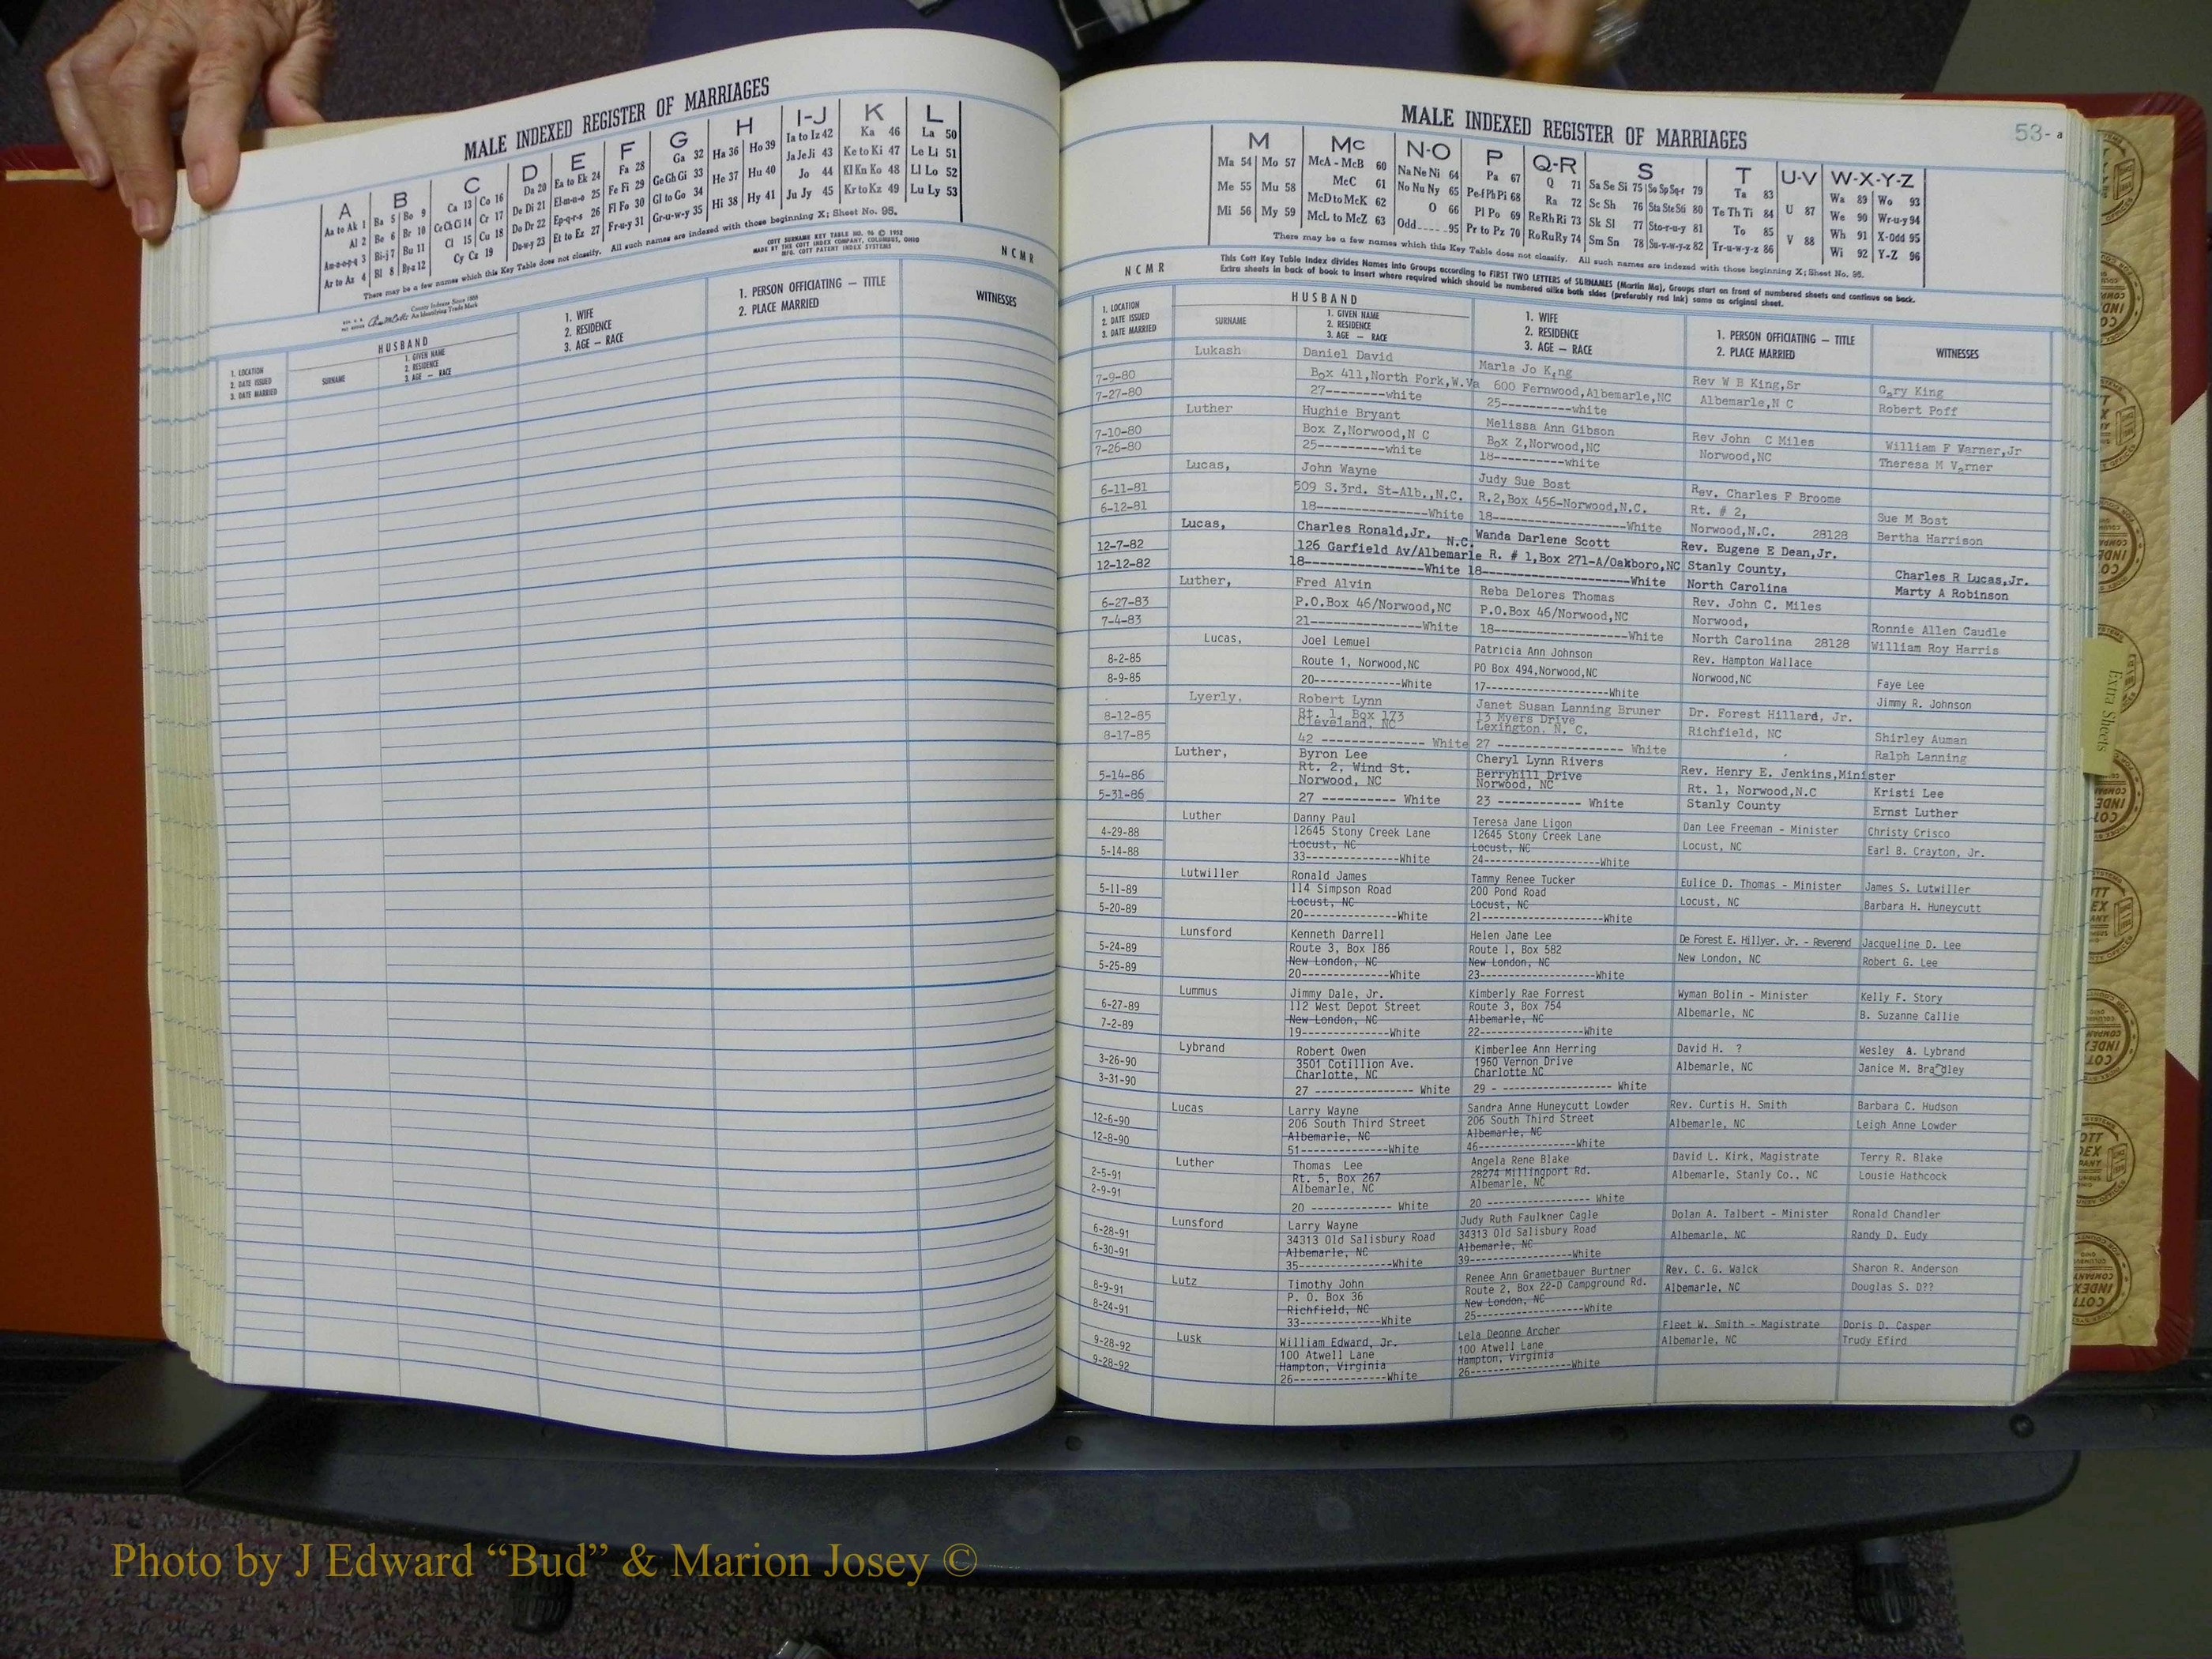 MALE INDEXED REGISTER OF MARRIAGES
A B C D E F G H I-J K L
Aa to Ak 1 Ba 5 Bo 9 Ca 13 Co 16 Da 20 Ea to Ek 24 Fa 28 Ga 32 Ha 36 Ho 39 Ia to Iz 42 Ka 46 La 50
Al 2 Be 6 Br 10 Ce Ch Ci 14 Cr 17 De Di 21 El-m-n-o 25 Fe Fi 29 Ge Gh Gi 33 He 37 Hu 40 Ja Je Ji 43 Ke to Ki 47 Le Li 51
Am-n-o-p-q 3 Bi-j 7 Bu 11 Cl 15 Cu 18 Do Dr 22 Ep-q-r-s 26 Fl Fo 30 Gl to Go 34 Hi 38 Hy 41 Jo 44 Kl Kn Ko 48 Ll Lo 52
Ar to Az 4 Bl 8 By-z 12 Cy Cz 19 Du-w-y 23 Et to Ez 27 Fr-u-y 31 Gr-u-w-y 35 Ju Jy 45 Kr to Kz 49 Lu Ly 53
There may be a few names which this Key Table does not classify. All such names are indexed with those beginning X; Sheet No. 95.
COTT SURNAME KEY TABLE NO. 96 © 1952
MADE BY THE COTT INDEX COMPANY, COLUMBUS, OHIO
MFG. COTT PATENT INDEX SYSTEMS
N C M R
County Indexes Since 1888
An Identifying Trade Mark
1. LOCATION
2. DATE ISSUED
3. DATE MARRIED
HUSBAND
SURNAME
1. GIVEN NAME
2. RESIDENCE
3. AGE — RACE
1. WIFE
2. RESIDENCE
3. AGE — RACE
1. PERSON OFFICIATING — TITLE
2. PLACE MARRIED
WITNESSES
53- a
MALE INDEXED REGISTER OF MARRIAGES
M Mc N-O P Q-R S T U-V W-X-Y-Z
Ma 54 Mo 57 McA - McB 60 Na Ne Ni 64 Pa 67 Q 71 Sa Se Si 75 So Sp Sq-r 79 Ta 83 Wa 89 Wo 93
Me 55 Mu 58 McC 61 No Nu Ny 65 Pe-f Ph Pi 68 Ra 72 Sc Sh 76 Sta Ste Sti 80 Te Th Ti 84 U 87 We 90 Wr-u-y 94
Mi 56 My 59 McD to McK 62 O 66 Pl Po 69 Re Rh Ri 73 Sk Sl 77 Sto-r-u-y 81 To 85 Wh 91 X-Odd 95
McL to McZ 63 Odd 95 Pr to Pz 70 Ro Ru Ry 74 Sm Sn 78 Su-v-w-y-z 82 Tr-u-w-y-z 86 V 88 Wi 92 Y-Z 96
There may be a few names which this Key Table does not classify. All such names are indexed with those beginning X; Sheet No. 95.
This Cott Key Table Index divides Names into Groups according to FIRST TWO LETTERS of SURNAMES (Martin Ma), Groups start on front of numbered sheets and continue on back.
Extra sheets in back of book to insert where required which should be numbered alike both sides (preferably red ink) same as original sheet.
N C M R
1. LOCATION
2. DATE ISSUED
3. DATE MARRIED
HUSBAND
SURNAME
1. GIVEN NAME
2. RESIDENCE
3. AGE — RACE
1. WIFE
2. RESIDENCE
3. AGE — RACE
1. PERSON OFFICIATING — TITLE
2. PLACE MARRIED
WITNESSES
Lukash Daniel David Marla Jo King
7-9-80 Box 411,North Fork,W.Va 600 Fernwood,Albemarle,NC Rev W B King,Sr Gary King
7-27-80 27--------white 25----------white Albemarle,N C Robert Poff
Luther Hughie Bryant Melissa Ann Gibson
7-10-80 Box Z,Norwood,N C Box Z,Norwood,NC Rev John C Miles William F Varner,Jr
7-26-80 25---------white 18----------white Norwood,NC Theresa M Varner
Lucas, John Wayne Judy Sue Bost
6-11-81 509 S.3rd. St-Alb.,N.C. R.2,Box 456-Norwood,N.C. Rev. Charles F Broome
6-12-81 18--------------White 18-----------------White Rt. # 2, Sue M Bost
Norwood,N.C. 28128 Bertha Harrison
Lucas, Charles Ronald,Jr. N.C. Wanda Darlene Scott
12-7-82 126 Garfield Av/Albemarle R. # 1,Box 271-A/Oakboro,NC Rev. Eugene E Dean,Jr.
12-12-82 18---------------White 18------------------White Stanly County, Charles R Lucas,Jr.
North Carolina Marty A Robinson
Luther, Fred Alvin Reba Delores Thomas
6-27-83 P.O.Box 46/Norwood,NC P.O.Box 46/Norwood,NC Rev. John C. Miles
7-4-83 21---------------White 18------------------White Norwood, Ronnie Allen Caudle
North Carolina 28128 William Roy Harris
Lucas, Joel Lemuel Patricia Ann Johnson
8-2-85 Route 1, Norwood,NC PO Box 494,Norwood,NC Rev. Hampton Wallace
8-9-85 20--------------White 17--------------------White Norwood,NC Faye Lee
Jimmy R. Johnson
Lyerly, Robert Lynn Janet Susan Lanning Bruner
8-12-85 Rt. 1, Box 173 13 Myers Drive Dr. Forest Hillard, Jr.
Cleveland, NC Lexington, N. C.
8-17-85 42 -------------- White 27 ----------------- White Richfield, NC Shirley Auman
Ralph Lanning
Luther, Byron Lee Cheryl Lynn Rivers
5-14-86 Rt. 2, Wind St. Berryhill Drive Rev. Henry E. Jenkins,Minister
Norwood, NC Norwood, NC
5-31-86 27 ---------- White 23 ------------ White Rt. 1, Norwood,N.C Kristi Lee
Stanly County Ernst Luther
Luther Danny Paul Teresa Jane Ligon
4-29-88 12645 Stony Creek Lane 12645 Stony Creek Lane Dan Lee Freeman - Minister Christy Crisco
5-14-88 Locust, NC Locust, NC Locust, NC Earl B. Crayton, Jr.
33---------------White 24-------------------White
Lutwiller Ronald James Tammy Renee Tucker
5-11-89 114 Simpson Road 200 Pond Road Eulice D. Thomas - Minister James S. Lutwiller
5-20-89 Locust, NC Locust, NC Locust, NC Barbara H. Huneycutt
20---------------White 21--------------------White
Lunsford Kenneth Darrell Helen Jane Lee
5-24-89 Route 3, Box 186 Route 1, Box 582 De Forest E. Hillyer, Jr. - Reverend Jacqueline D. Lee
5-25-89 New London, NC New London, NC New London, NC Robert G. Lee
20--------------White 23-------------------White
Lummus Jimmy Dale, Jr. Kimberly Rae Forrest
6-27-89 112 West Depot Street Route 3, Box 754 Wyman Bolin - Minister Kelly F. Story
7-2-89 New London, NC Albemarle, NC Albemarle, NC B. Suzanne Callie
19--------------White 22-----------------White
Lybrand Robert Owen Kimberlee Ann Herring
3-26-90 3501 Cotillion Ave. 1960 Vernon Drive David H. ? Wesley A. Lybrand
3-31-90 Charlotte, NC Charlotte NC Albemarle, NC Janice M. Bradley
27 -------------- White 29 - ---------------- White
Lucas Larry Wayne Sandra Anne Huneycutt Lowder
12-6-90 206 South Third Street 206 South Third Street Rev. Curtis H. Smith Barbara C. Hudson
12-8-90 Albemarle, NC Albemarle, NC Albemarle, NC Leigh Anne Lowder
51--------------White 46----------------White
Luther Thomas Lee Angela Rene Blake
2-5-91 Rt. 5, Box 267 28274 Millingport Rd. David L. Kirk, Magistrate Terry R. Blake
2-9-91 Albemarle, NC Albemarle, NC Albemarle, Stanly Co., NC Lousie Hathcock
20 ------------- White 20 ----------------- White
Lunsford Larry Wayne Judy Ruth Faulkner Cagle
6-28-91 34313 Old Salisbury Road 34313 Old Salisbury Road Dolan A. Talbert - Minister Ronald Chandler
6-30-91 Albemarle, NC Albemarle, NC Albemarle, NC Randy D. Eudy
35---------------White 39-----------------White
Lutz Timothy John Renee Ann Grametbauer Burtner
8-9-91 P. O. Box 36 Route 2, Box 22-D Campground Rd. Rev. C. G. Walck Sharon R. Anderson
8-24-91 Richfield, NC New London, NC Albemarle, NC Douglas S. D??
33-------------White 25------------------White
Lusk William Edward, Jr. Lela Deonne Archer
9-28-92 100 Atwell Lane 100 Atwell Lane Fleet W. Smith - Magistrate Doris D. Casper
9-28-92 Hampton, Virginia Hampton, Virginia Albemarle, NC Trudy Efird
26---------------White 26------------------White
Extra Sheets
Photo by J Edward “Bud” & Marion Josey ©